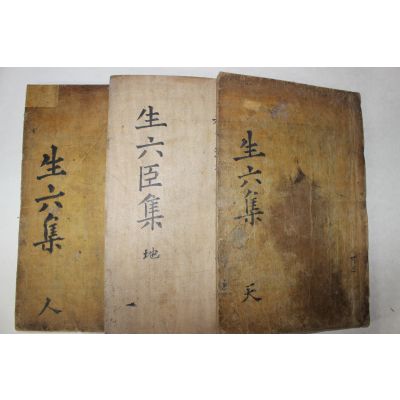 生六集
天
生六臣集
地
生六集
人